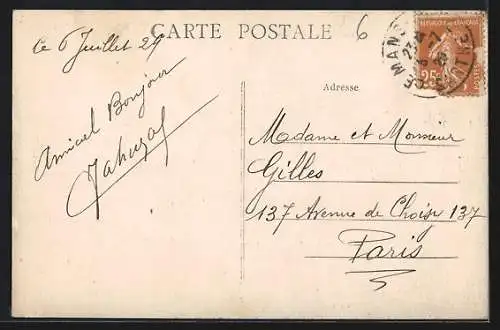 CARTE POSTALE
6
Le 6 Juillet 29
Amical Bonjour
Adresse
Madame et Monsieur
Gilles
137 Avenue de Choisi 137
Paris
REPUBLIQUE FRANÇAISE
25
LE MANS
SARTHE